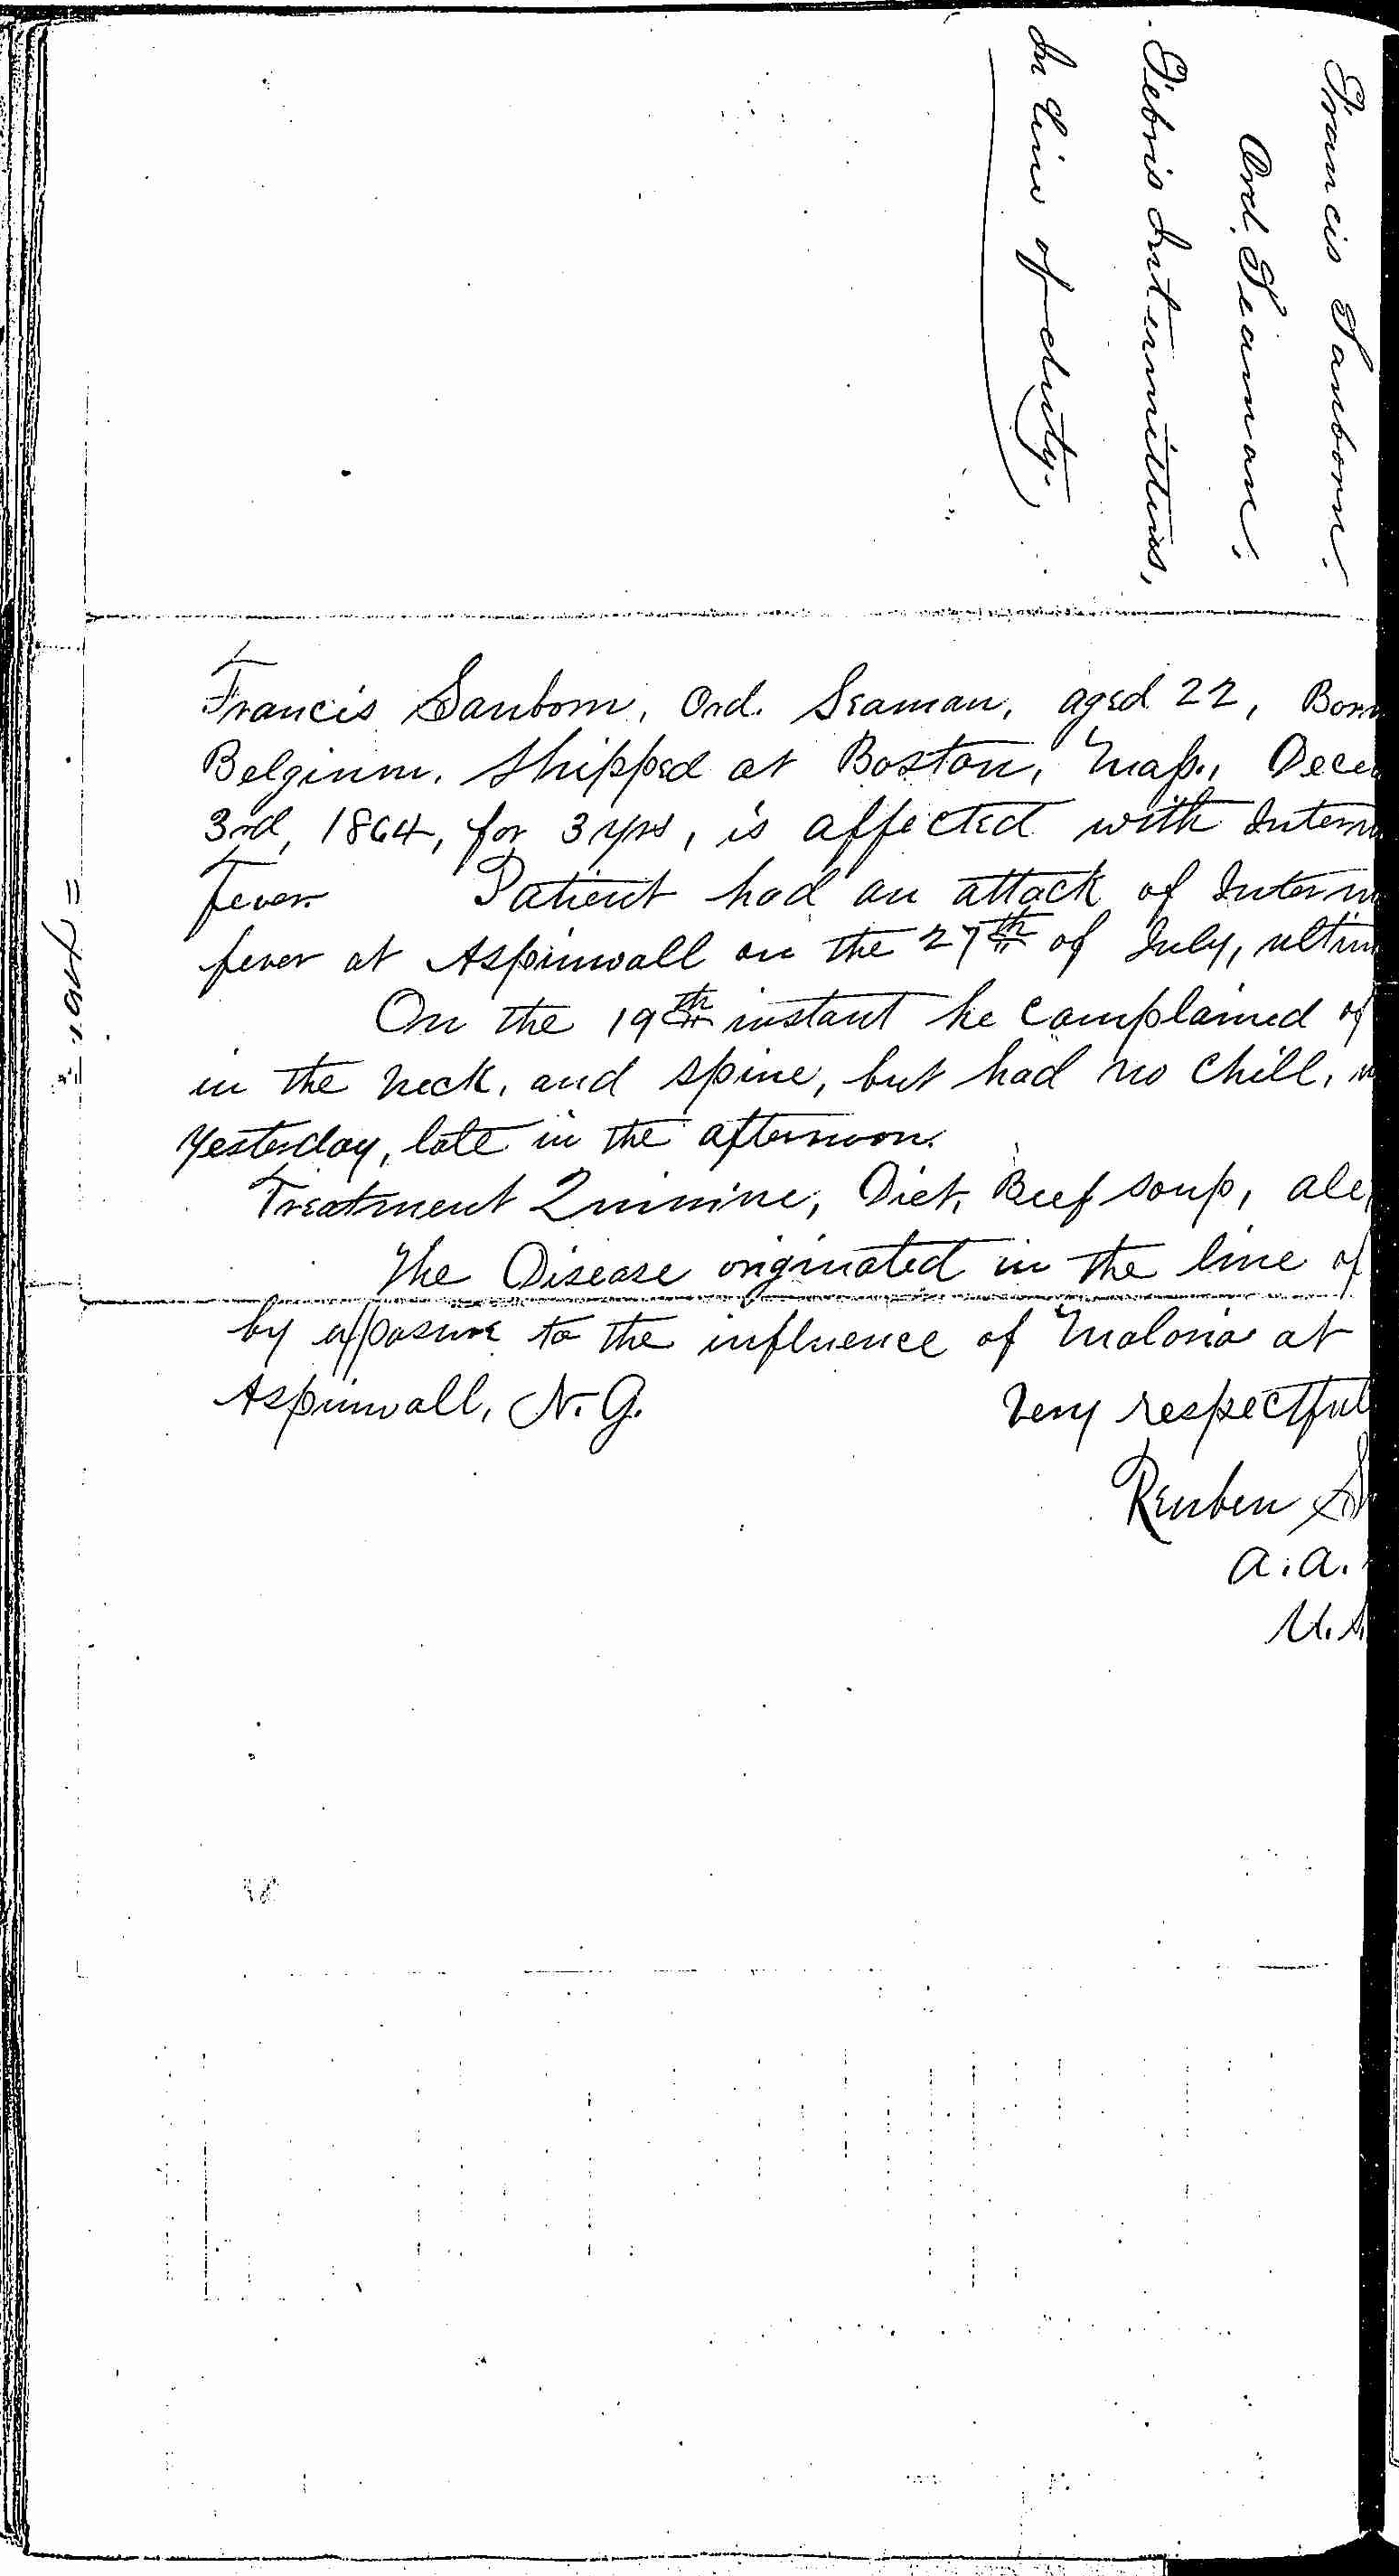 Francis Sanborn.
Ord. Seaman,
Febris Intermittens,
In line of duty.
Francis Sanborn, Ord. Seaman, aged 22, Born
Belgium, Shipped at Boston, Mass., Dece
3rd, 1864, for 3 yrs, is affected with Interm
Fever. Patient had an attack of Interm
fever at Aspinwall on the 27th of July, ultim
On the 19th instant he complained of
in the neck, and spine, but had no chill,
Yesterday, late in the afternoon.
Treatment Quinine, Diet, Beef soup, ale,
The Disease originated in the line of
by exposure to the influence of Malaria at
Aspinwall, N. G. Very respectful
Reuben S
A. A.
U. S.